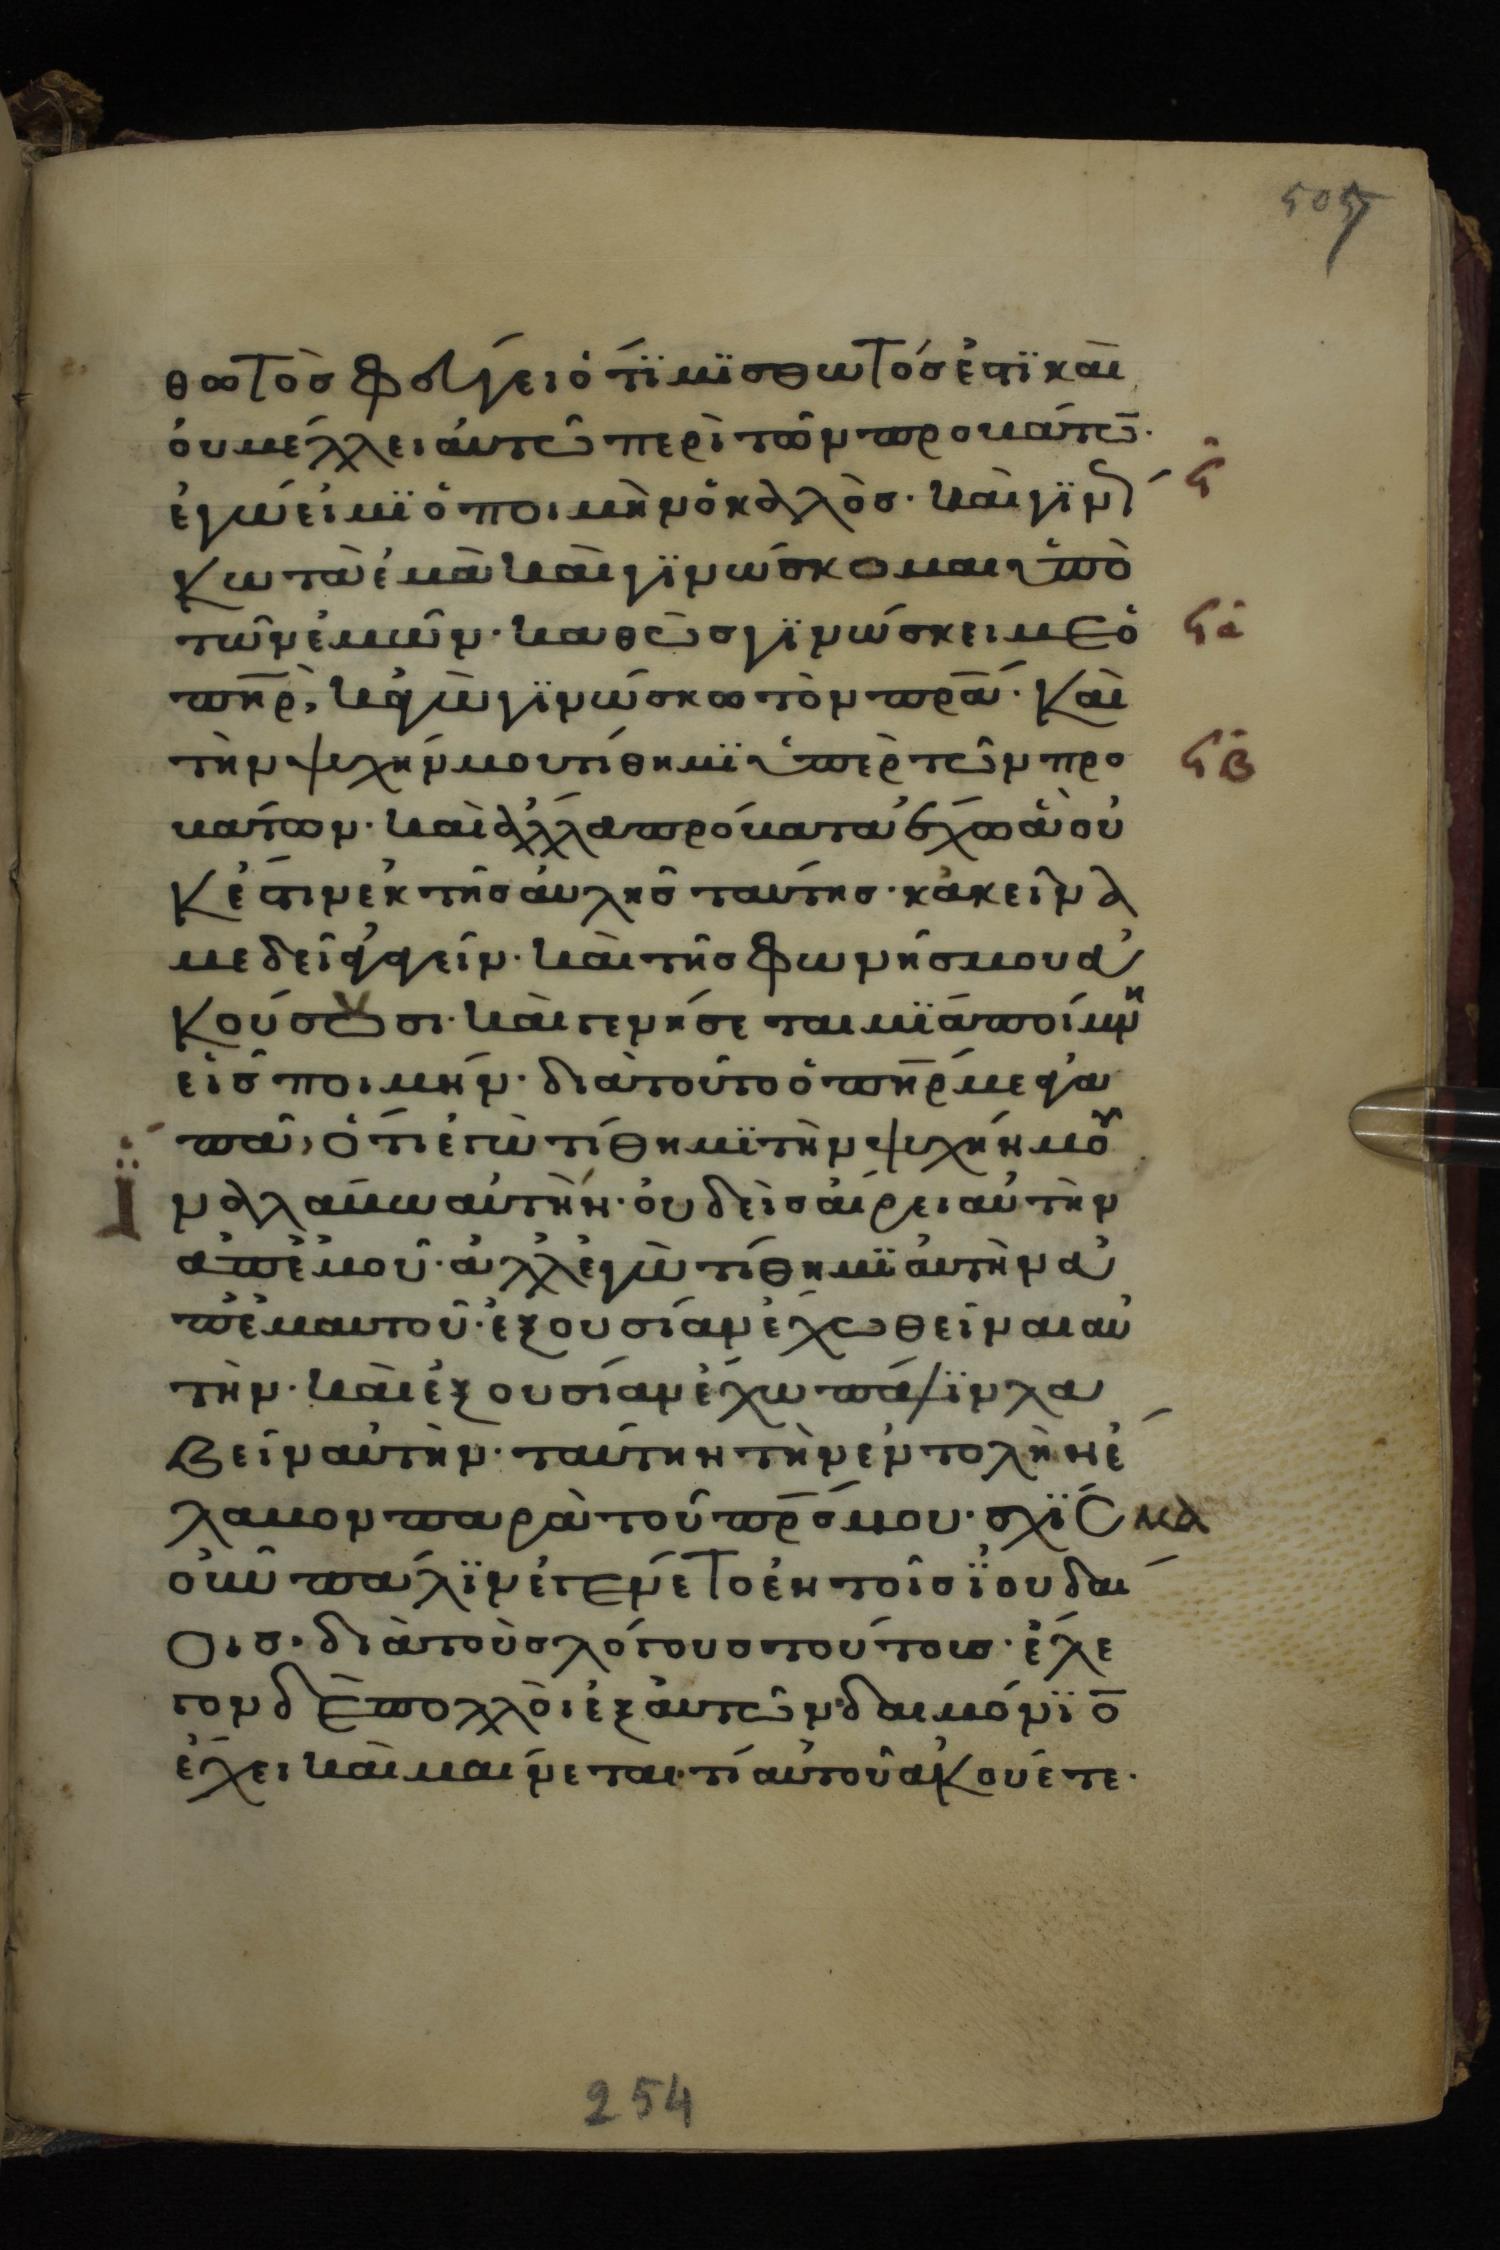 505
θωτὸς φεύγει ὅτϊ μϊσθωτός ἐστϊ καὶ
ὀυ μέλλει ἀυτῶ περὶ τῶν προβάτω̅·
ἐγώ εἰμϊ ὁ ποιμὴν ὁ καλὸς· καὶ γϊνώσ
κω τὰ ἐμὰ καὶ γϊνώσκομαι ὑπὸ
τῶν ἐμῶν· καθὼς γϊνώσκει με ὁ
π̅η̅ρ̅, κἀγὼ γϊνώσκω τὸν π̅ρ̅α̅· καὶ
τὴν ψυχήν μου τίθημϊ ὑπὲρ τῶν προ
βάτων· καὶ ἄλλα πρόβατα ἔχω ἃ οὐ
κ ἔστιν ἐκ τῆς ἀυλῆς ταύτης· κἀκεῖνά
με δεῖ ἀγαγεῖν· καὶ τῆς φωνῆς μου ἀ
κούσουσι· καὶ γενήσεται μϊά ποίμνη
εἷς ποιμήν· διὰ τοῦτο ὁ π̅η̅ρ̅ με ἀγα
πᾶ, ὅτι ἐγὼ τίθημϊ τὴν ψυχήν μου
ἵνα πάλϊν λάβω αὐτὴν· ὀυδεὶς ἀίρει αὐτὴν
ἀπ ἐμοῦ· ἀλλ ἐγὼ τίθημϊ ἀυτὴν ἀ
π ἐμαυτοῦ· ἐξουσίαν ἔχω θεῖναι αὐ
τὴν· καὶ ἐξουσίαν ἔχω πάλϊν λα
βεῖν αὐτὴν· ταύτην τὴν ἐντολὴν ἔ
λαβον παρὰ τοῦ π̅ρ̅ς̅ μου· σχϊσμα
οὖν πάλϊν ἐγένετο ἐν τοῖς ϊουδαί
οις· διὰ τοὺς λόγους τούτους· ἔλε
γον δὲ πολλὸι ἐξ ἀυτῶν· δαιμόνϊο̅
ἔχει καὶ μαίνεται· τί αὐτοῦ ἀκούετε·
ϟ
ϟα
ϟβ
254